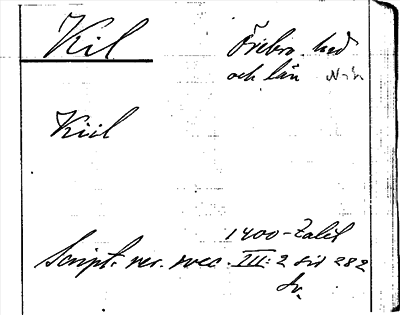 Kil
Örebro hed
och län N-k
Kiil
1400-talet
Script. rer. svec. III: 2 sid 282
Av.